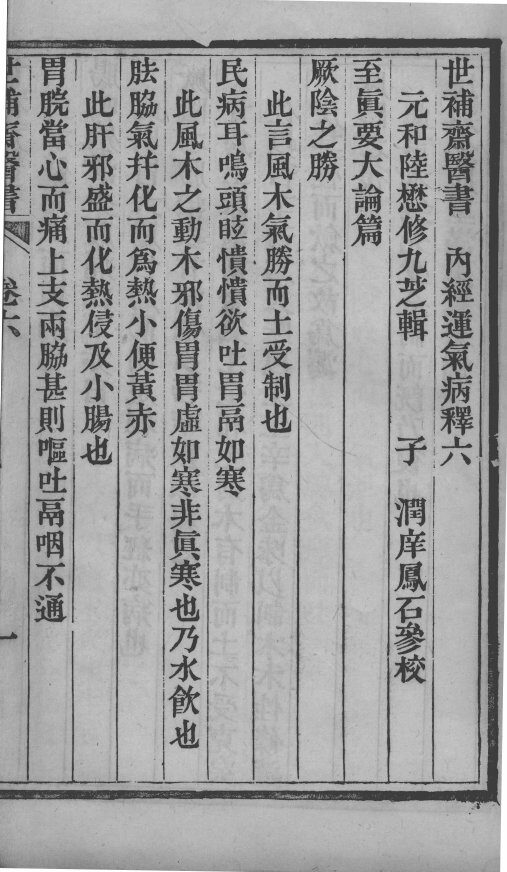 世補齋醫書　內經運氣病釋六
元和陸懋修九芝輯　子　潤庠鳳石參校
至眞要大論篇
厥陰之勝
此言風木氣勝而土受制也
民病耳鳴頭眩憒憒欲吐胃鬲如寒
此風木之動木邪傷胃胃虛如寒非眞寒也乃水飮也
胠脇氣幷化而爲熱小便黃赤
此肝邪盛而化熱侵及小腸也
胃脘當心而痛上支兩脇甚則嘔吐鬲咽不通
世補齋醫書　卷六　一